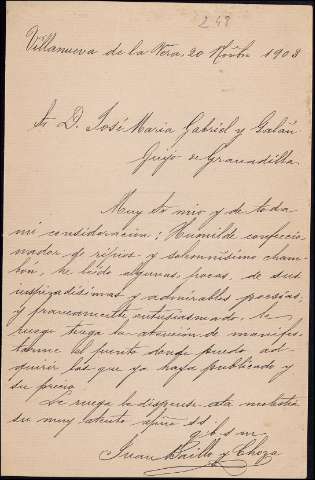 248
Villanueva de la Vera, 20 Novbre 1903
Sr. D. José María Gabriel y Galán
Guijo de Granadilla.
Muy Sr mio y de toda
mi consideración: Humilde confeccio
nador de ripios y solemnísimo cham
bón, he leído algunas, pocas, de sus
inspiradísimas y admirables poesías,
y francamente entusiasmado, le
ruego tenga la atención de manifes
tarme el punto donde puedo ad
quirir las que ya haya publicado y
su precio.
Le ruega le dispense esta molestia
su muy atento afmo. s.s.
q. b. s. m.
Juan